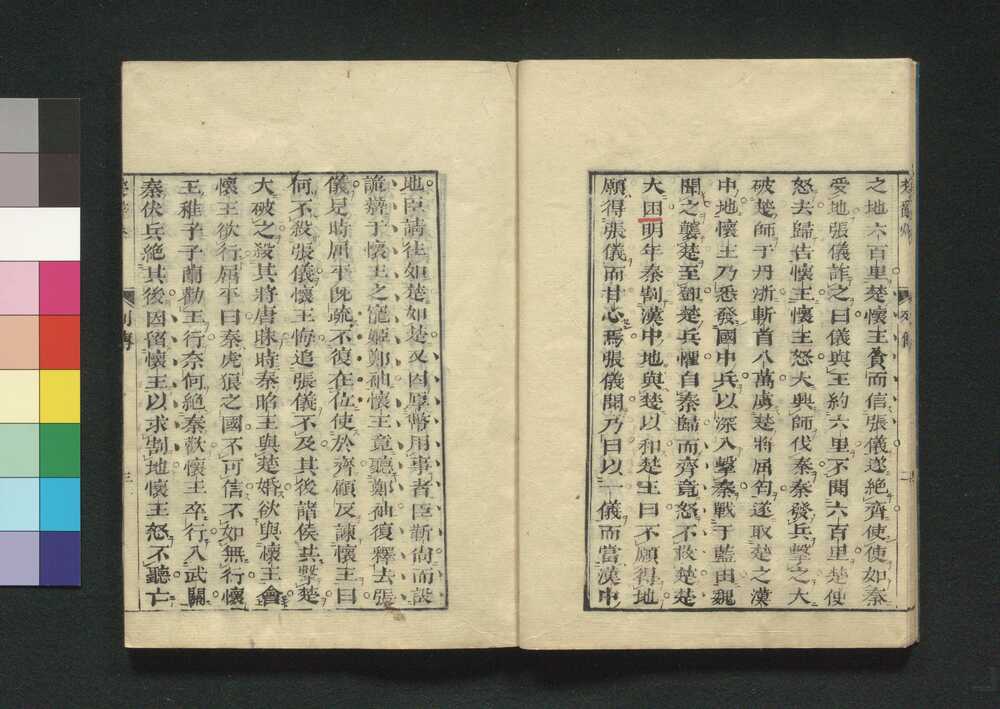 之地六百里楚懷王貪而信張儀遂絕齊使使如秦
受地張儀詐之曰儀與王約六里不聞六百里楚使
怒去歸告懷王懷王怒大興師伐秦秦發兵擊之大
破楚師于丹淅斬首八萬虜楚將屈匄遂取楚之漢
中地懷王乃悉發國中兵以深入擊秦戰于藍田魏
聞之襲楚至鄧楚兵懼自秦歸而齊竟怒不救楚楚
大困明年秦割漢中地與楚以和楚王曰不願得地
願得張儀而甘心焉張儀聞乃曰以一儀而當漢中
地臣請往如楚如楚又因厚幣用事者臣靳尚而設
詭辯于懷王之寵姬鄭袖懷王竟聽鄭袖復釋去張
儀是時屈平既疏不復在位使於齊顧反諫懷王曰
何不殺張儀懷王悔追張儀不及其後諸侯共擊楚
大破之殺其將唐昧時秦昭王與楚婚欲與懷王會
懷王欲行屈平曰秦虎狼之國不可信不如無行懷
王稚子子蘭勸王行奈何絕秦歡懷王卒行入武關
秦伏兵絕其後因留懷王以求割地懷王怒不聽亡
列傳
三